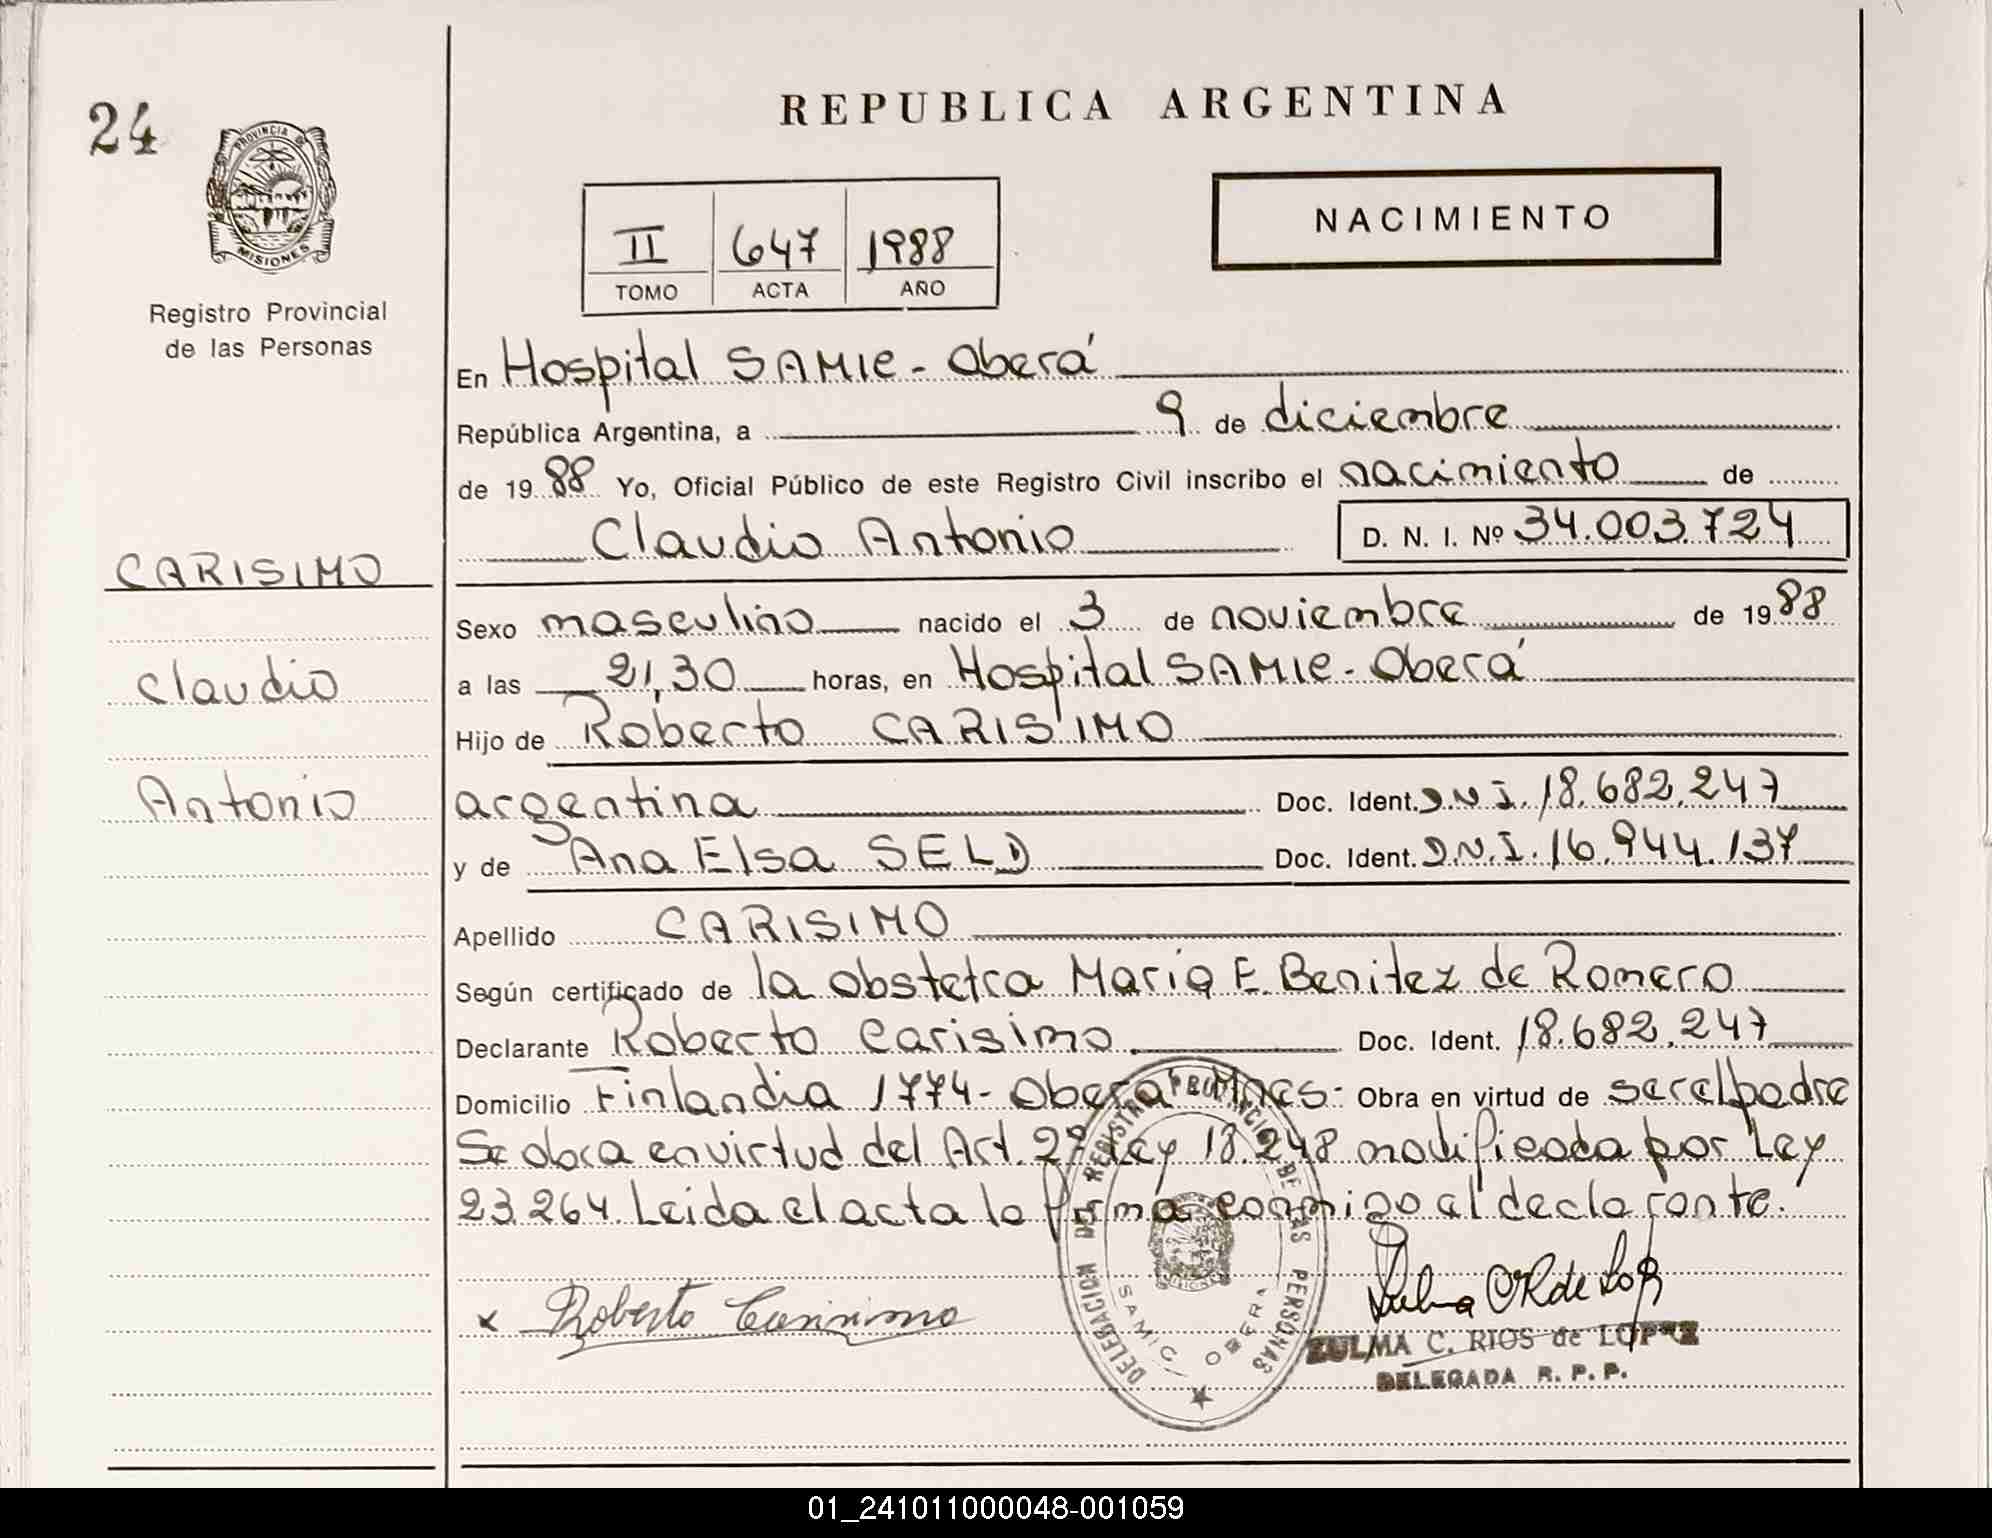 REPUBLICA ARGENTINA
24
PROVINCIA DE
MISIONES
NACIMIENTO
II 647 1988
TOMO ACTA AÑO
Registro Provincial
de las Personas
En Hospital SAMIC - Oberá
República Argentina, a 9 de diciembre
de 1988 Yo, Oficial Público de este Registro Civil inscribo el nacimiento de
Claudio Antonio D. N. I. Nº 34.003.724
CARISIMO
Claudio
Antonio
Sexo masculino nacido el 3 de noviembre de 1988
a las 21,30 horas, en Hospital SAMIC - Oberá
Hijo de Roberto CARISIMO
argentina Doc. Ident. D.N.I. 18.682.247
y de Ana Elsa Doc. Ident. D.N.I. 16.944.137
Apellido CARISIMO
Según certificado de la obstetra María E. Benitez de Romero
Declarante Roberto Carisimo Doc. Ident. 18.682.247
Domicilio Finlandia 1774 - Oberá Mnes - Obra en virtud de ser el padre
Se obra en virtud del Art. 2º Ley 18.248 modificada por Ley
23.264. Leida el acta la firma conmigo al declarante.
x Roberto Carisimo
DELEGACION DEL REGISTRO PROVINCIAL DE LAS PERSONAS
SAMIC / OBERA
ZULMA C. RIOS de LOPEZ
DELEGADA R. P. P.
01_241011000048-001059